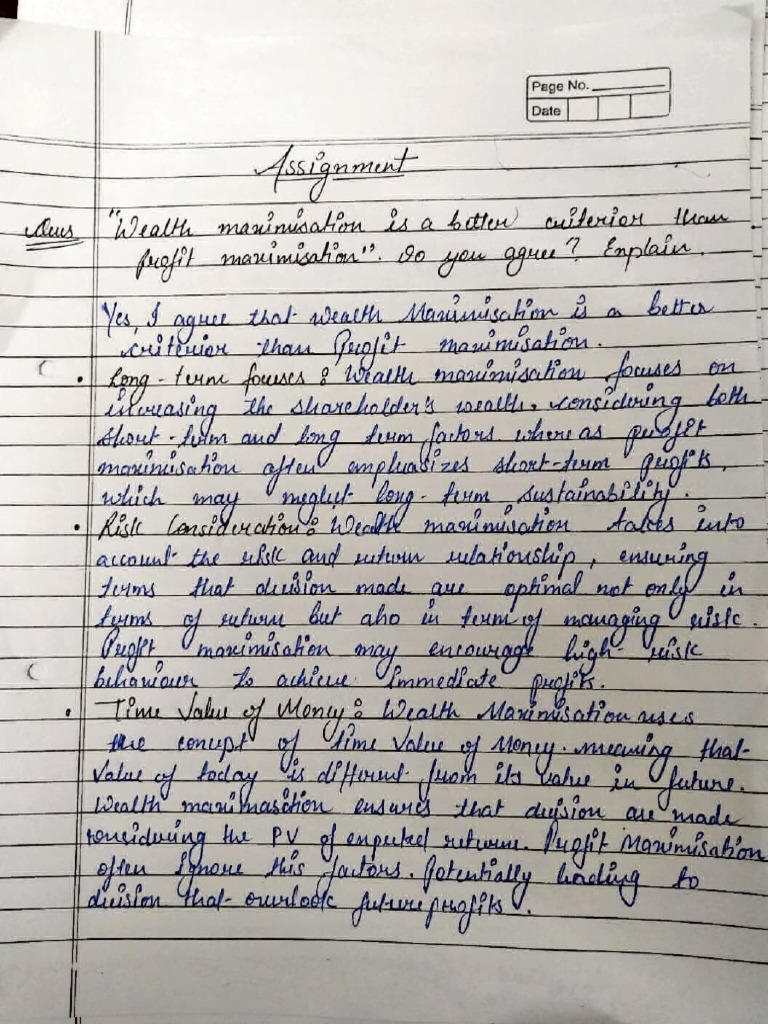 Page No.
Date
Assignment
Ques "Wealth maximisation is a better criterior than
profit maximisation". Do you agree? Explain.
Yes, I agree that wealth Maximisation is a better
criterior than Profit maximisation.
• Long-term focuses : Wealth maximisation focuses on
increasing the shareholder's wealth, considering both
short-term and long term factors where as profit
maximisation often emphasizes short-term profits,
which may neglect long-term sustainability.
• Risk Consideration : Wealth maximisation takes into
account the risk and return relationship, ensuring
terms that decision made are optimal not only in
terms of return but also in term of managing risk.
Profit maximisation may encourage high-risk
behaviour to achieve immediate profits.
• Time Value of Money : Wealth Maximisation uses
the concept of time Value of Money. meaning that
Value of today is different from its value in future.
Wealth maximasation ensures that decision are made
considering the PV of expected returns. Profit Maximisation
often ignore this factors. Potentially leading to
decision that overlook future profits.